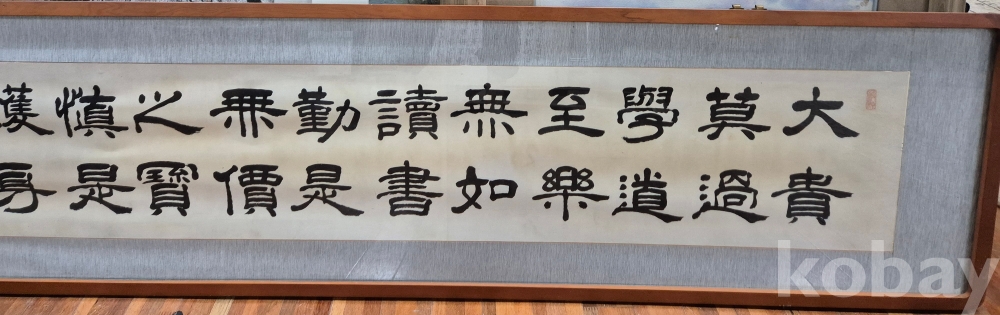 大貴
莫過
學道
至樂
無如
讀書
勤是
無價
之寶
慎是
護身
kobay